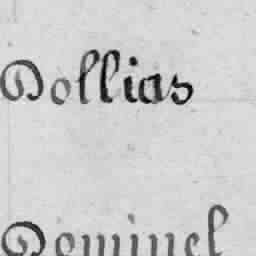 Dollias
Dominel